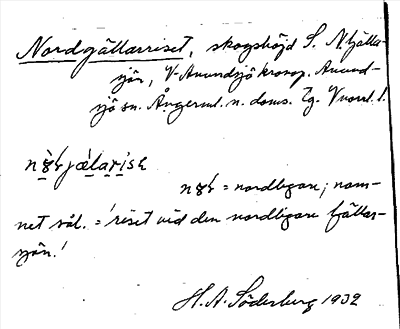 Nordgällarriset, skogshöjd S. N. fjälla-
sjön, V-Anundsjö kronop. Anund-
sjö sn. Ångerml. n. doms. Tg. Vnorrl. l.
nɤ̀ʳjǽlarisɛ
nɤʳ = nordligare; nam-
net säl. = 'riset vid den nordligare fjällar-
sjön.'
H. A. Söderberg 1932